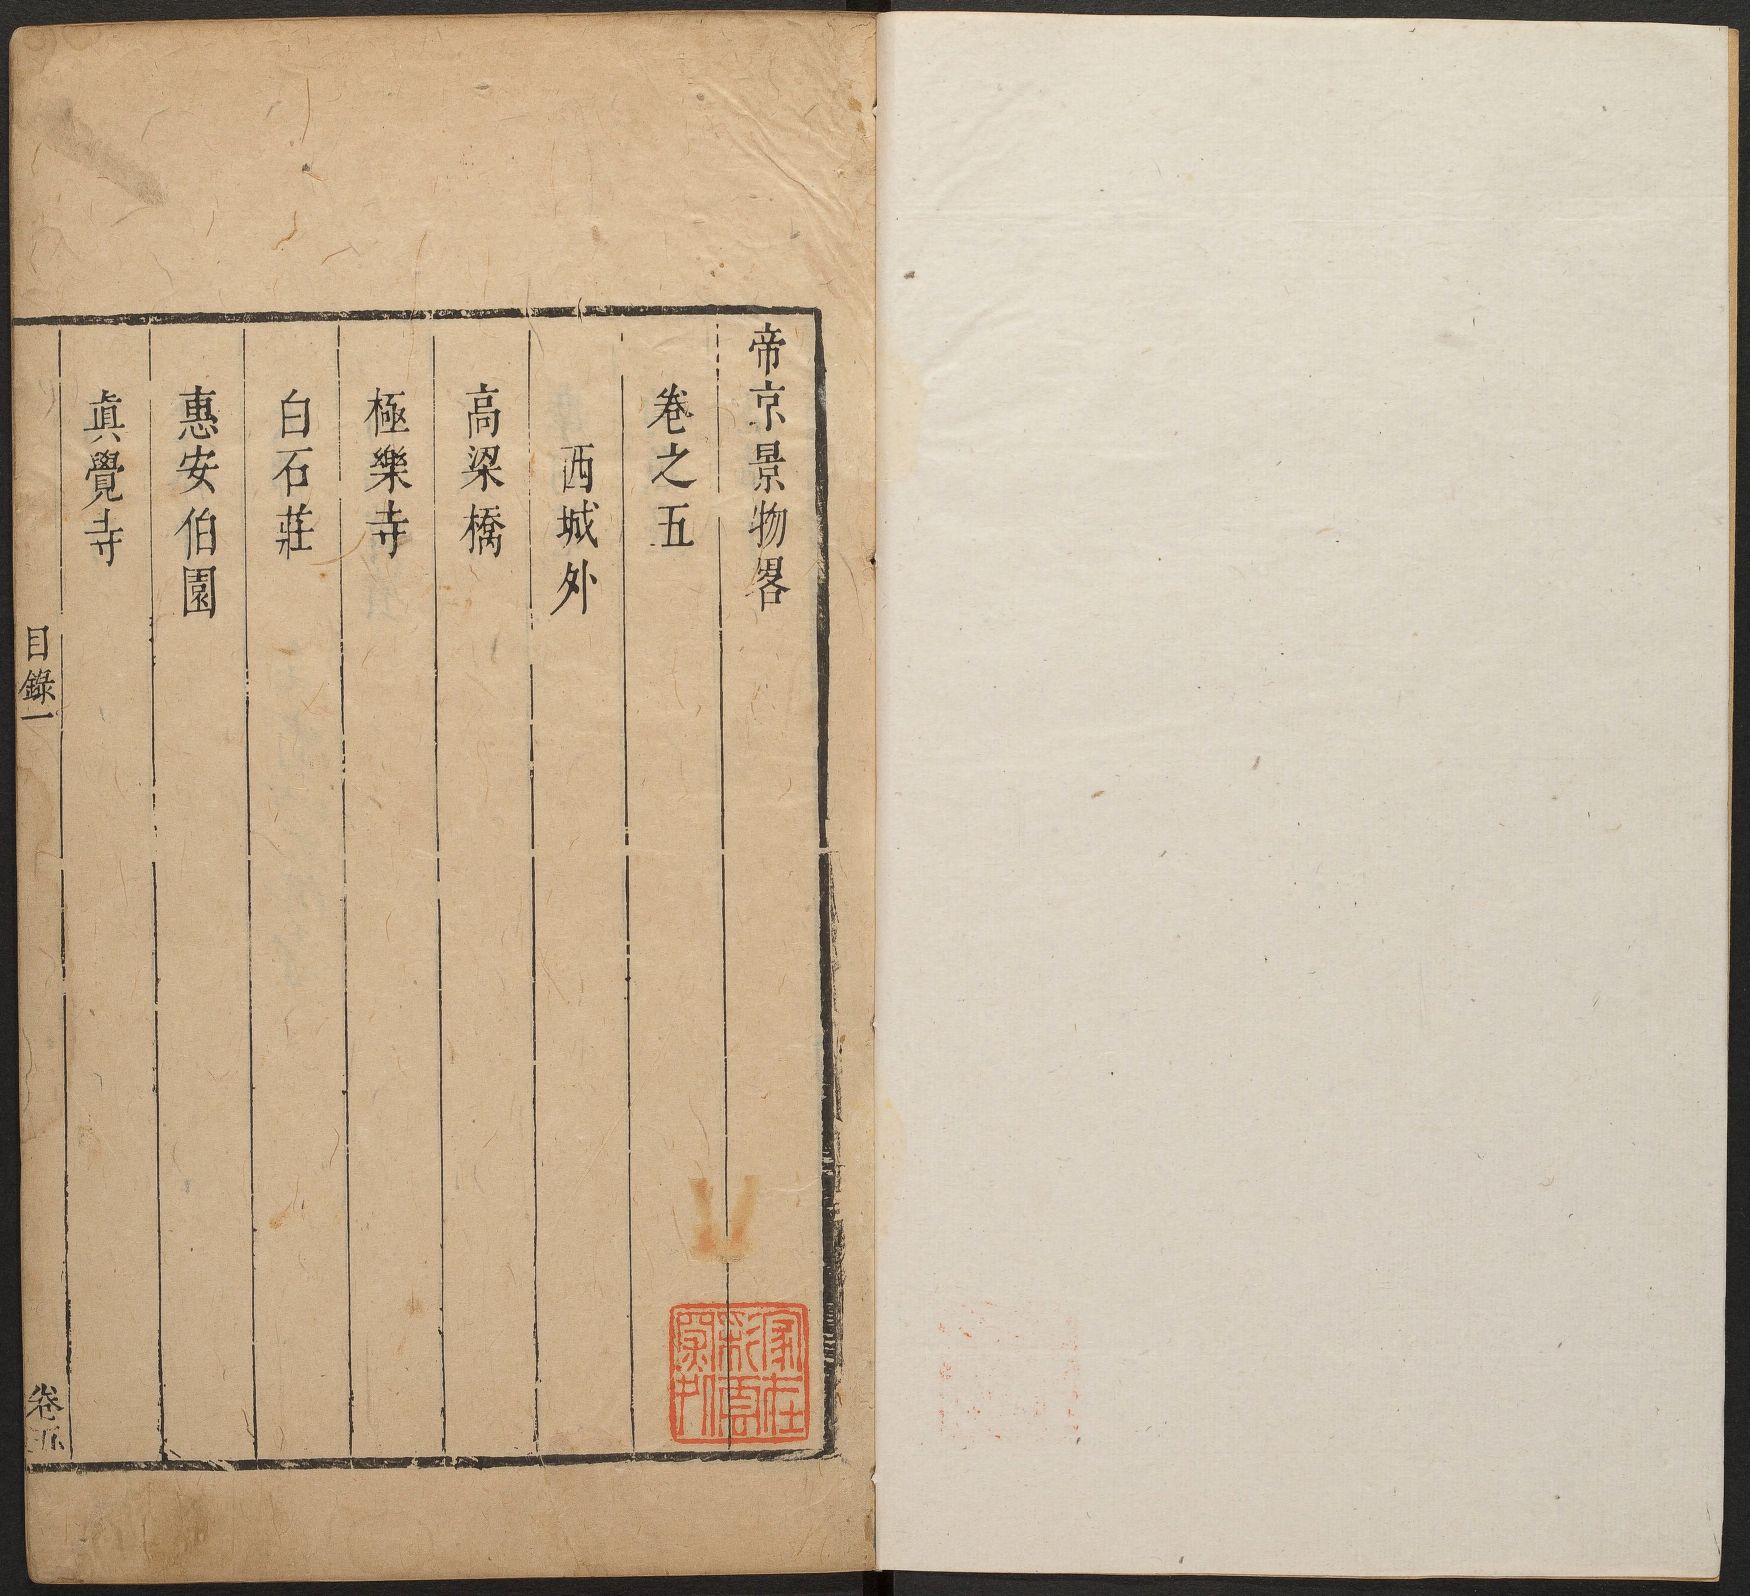 帝京景物畧
卷之五
西城外
高梁橋
極樂寺
白石莊
惠安伯園
眞覺寺
目錄一
卷五
家在
彩雲